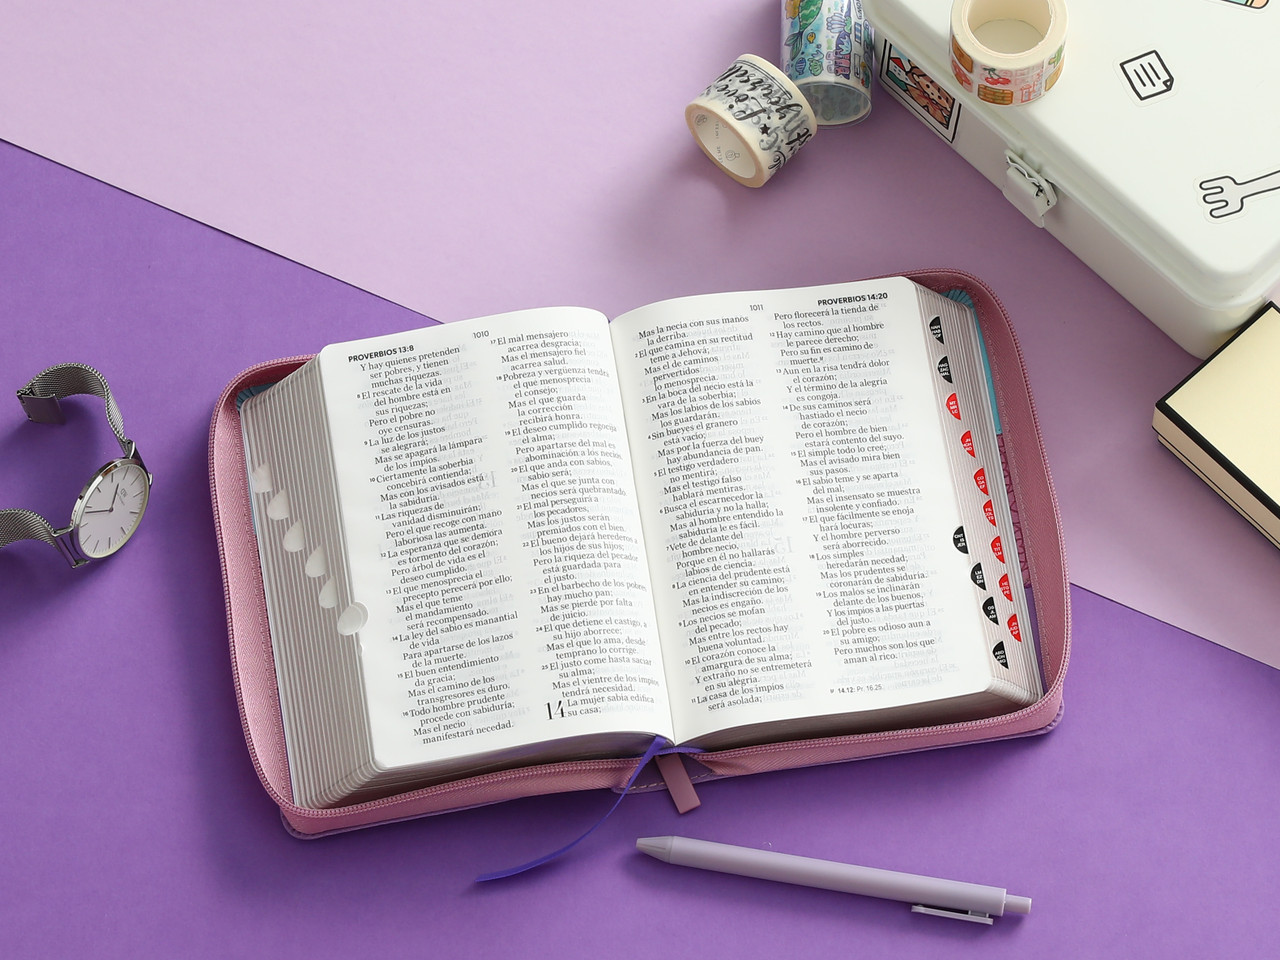 1010
PROVERBIOS 13:8
Y hay quienes pretenden
ser pobres, y tienen
muchas riquezas.
8 El rescate de la vida
del hombre está en
sus riquezas;
Pero el pobre no
oye censuras.
9 La luz de los justos
se alegrará;
Mas se apagará la lámpara
de los impíos.
10 Ciertamente la soberbia
concebirá contienda;
Mas con los avisados está
la sabiduría.
11 Las riquezas de
vanidad disminuirán;
Pero el que recoge con mano
laboriosa las aumenta.
12 La esperanza que se demora
es tormento del corazón;
Pero árbol de vida es el
deseo cumplido.
13 El que menosprecia el
precepto perecerá por ello;
Mas el que teme
el mandamiento
será recompensado.
14 La ley del sabio es manantial
de vida
Para apartarse de los lazos
de la muerte.
15 El buen entendimiento
da gracia;
Mas el camino de los
transgresores es duro.
16 Todo hombre prudente
procede con sabiduría;
Mas el necio
manifestará necedad.
17 El mal mensajero
acarrea desgracia;
Mas el mensajero fiel
acarrea salud.
18 Pobreza y vergüenza tendrá
el que menosprecia
el consejo;
Mas el que guarda
la corrección
recibirá honra.
19 El deseo cumplido regocija
el alma;
Pero apartarse del mal es
abominación a los necios.
20 El que anda con sabios,
sabio será;
Mas el que se junta con
necios será quebrantado.
21 El mal perseguirá a
los pecadores,
Mas los justos serán
premiados con el bien.
22 El bueno dejará herederos a
los hijos de sus hijos;
Pero la riqueza del pecador
está guardada para
el justo.
23 En el barbecho de los pobres
hay mucho pan;
Mas se pierde por falta
de juicio.
24 El que detiene el castigo, a
su hijo aborrece;
Mas el que lo ama, desde
temprano lo corrige.
25 El justo come hasta saciar
su alma;
Mas el vientre de los impíos
tendrá necesidad.
14 La mujer sabia edifica
su casa;
1011
PROVERBIOS 14:20
Mas la necia con sus manos
la derriba.
2 El que camina en su rectitud
teme a Jehová;
Mas el de caminos
pervertidos
lo menosprecia.
3 En la boca del necio está la
vara de la soberbia;
Mas los labios de los sabios
los guardarán.
4 Sin bueyes el granero
está vacío;
Mas por la fuerza del buey
hay abundancia de pan.
5 El testigo verdadero
no mentirá;
Mas el testigo falso
hablará mentiras.
6 Busca el escarnecedor la
sabiduría y no la halla;
Mas al hombre entendido la
sabiduría le es fácil.
7 Vete de delante del
hombre necio,
Porque en él no hallarás
labios de ciencia.
8 La ciencia del prudente está
en entender su camino;
Mas la indiscreción de los
necios es engaño.
9 Los necios se mofan
del pecado;
Mas entre los rectos hay
buena voluntad.
10 El corazón conoce la
amargura de su alma;
Y extraño no se entremeterá
en su alegría.
11 La casa de los impíos
será asolada;
Pero florecerá la tienda de
los rectos.
12 Hay camino que al hombre
le parece derecho;
Pero su fin es camino de
muerte.
13 Aun en la risa tendrá dolor
el corazón;
Y el término de la alegría
es congoja.
14 De sus caminos será
hastiado el necio
de corazón;
Pero el hombre de bien
estará contento del suyo.
15 El simple todo lo cree;
Mas el avisado mira bien
sus pasos.
16 El sabio teme y se aparta
del mal;
Mas el insensato se muestra
insolente y confiado.
17 El que fácilmente se enoja
hará locuras;
Y el hombre perverso
será aborrecido.
18 Los simples
heredarán necedad;
Mas los prudentes se
coronarán de sabiduría.
19 Los malos se inclinarán
delante de los buenos,
Y los impíos a las puertas
del justo.
20 El pobre es odioso aun a
su amigo;
Pero muchos son los que
aman al rico.
14.12: Pr. 16.25.